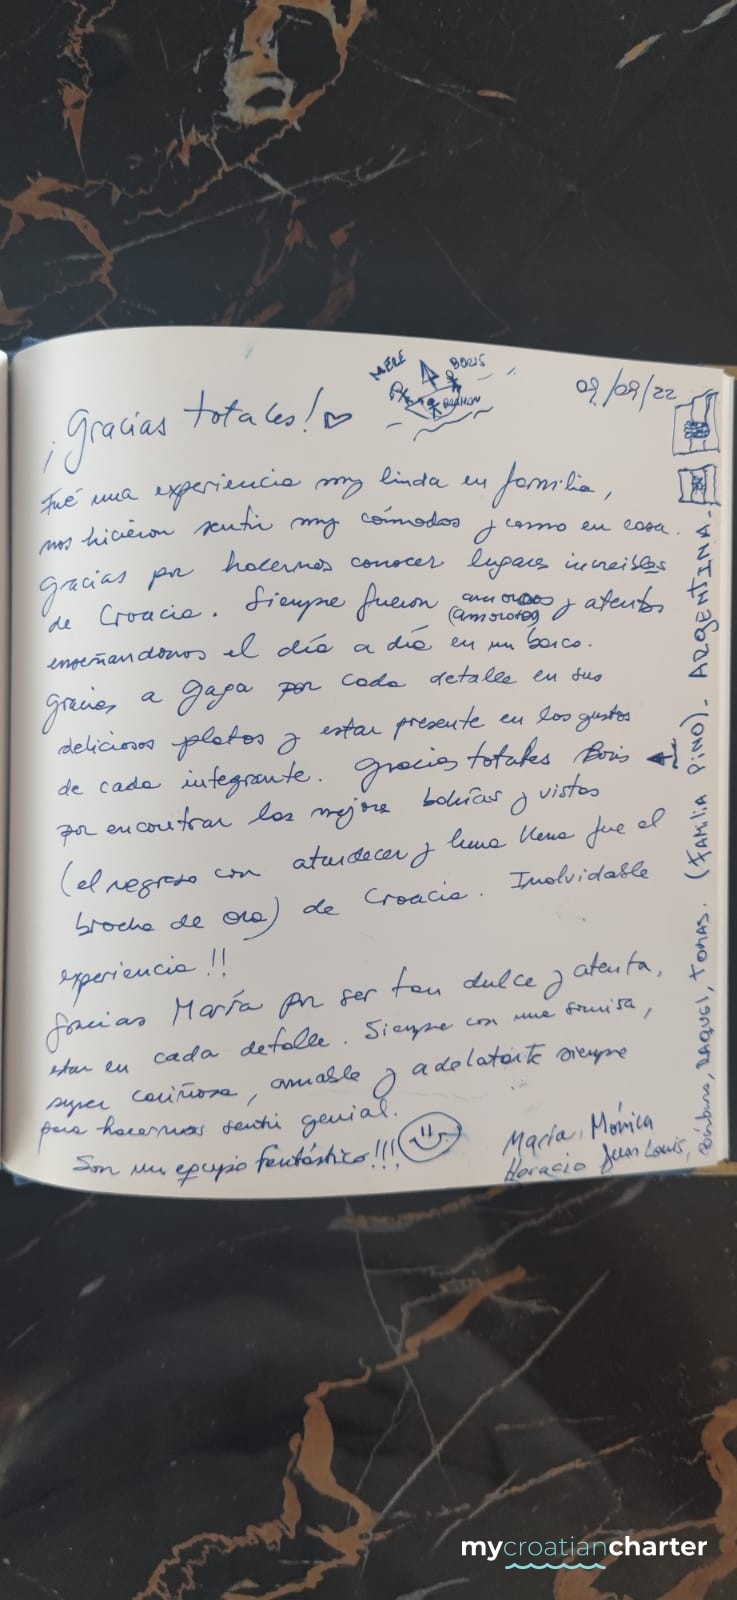 MERE BORIS
09/09/22
¡Gracias totales! ♡
Fué una experiencia muy linda en familia,
nos hicieron sentir muy cómodos y como en casa.
gracias por hacernos conocer lugares increibles
de Croacia. Siempre fueron amorosos y atentos
(amorosos)
enseñandonos el día a día en un barco.
gracias a gaga por cada detalle en sus
deliciosos platos y estar presente en los gustos
de cada integrante. gracias totales Boris
por encontrar las mejores bahías y vistas
(el regreso con atardecer y luna llena fue el
broche de oro) de Croacia. Inolvidable
experiencia!!
gracias María por ser tan dulce y atenta,
estar en cada detalle. Siempre con una sonrisa,
super cariñosa, amable y adelatarte siempre
para hacernos sentir genial.
Son un equipo fantástico!!!
María, Mónica
Horacio Juan Louis,
Bárbara, RAQUEL, TOMAS. (FAMILIA PINO). ARGENTINA.
mycroatiancharter